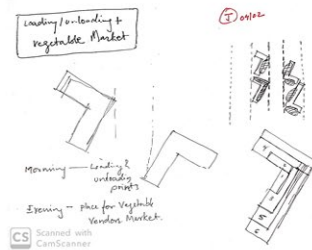 Loading/unloading +
Vegetable Market
I 04/02
Morning — Loading &
unloading
points
Evening -- place for Vegetable
Vendors Market.
5
6
CS Scanned with
CamScanner